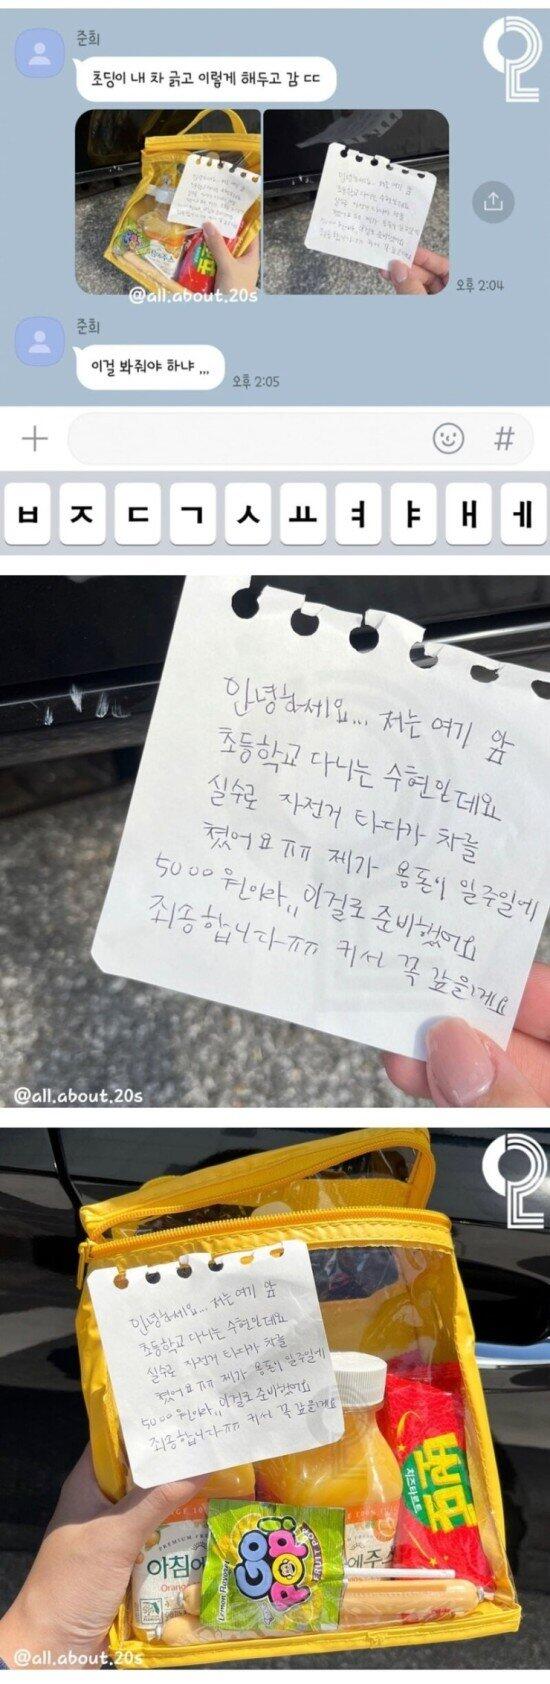 준희
초딩이 내 차 긁고 이렇게 해두고 감 ㄷㄷ
@all.about.20s
오후 2:04
준희
이걸 봐줘야 하냐 ,,,
오후 2:05
#
ㅂ ㅈ ㄷ ㄱ ㅅ ㅛ ㅕ ㅑ ㅐ ㅔ
안녕하세요... 저는 여기 앞
초등학교 다니는 수현인데요
실수로 자전거 타다가 차를
쳤어요 ㅠㅠ 제가 용돈이 일주일에
5000원이라,, 이걸로 준비했어요
죄송합니다ㅠㅠ 커서 꼭 갚을게요
@all.about.20s
안녕하세요... 저는 여기 앞
초등학교 다니는 수현인데요
실수로 자전거 타다가 차를
쳤어요 ㅠㅠ 제가 용돈이 일주일에
5000원이라,, 이걸로 준비했어요
죄송합니다ㅠㅠ 커서 꼭 갚을게요
PREMIUM
아침에
Orange
에주스
GO POP!
FRUIT POP
Lemon Flavour
치즈타르트
@all.about.20s